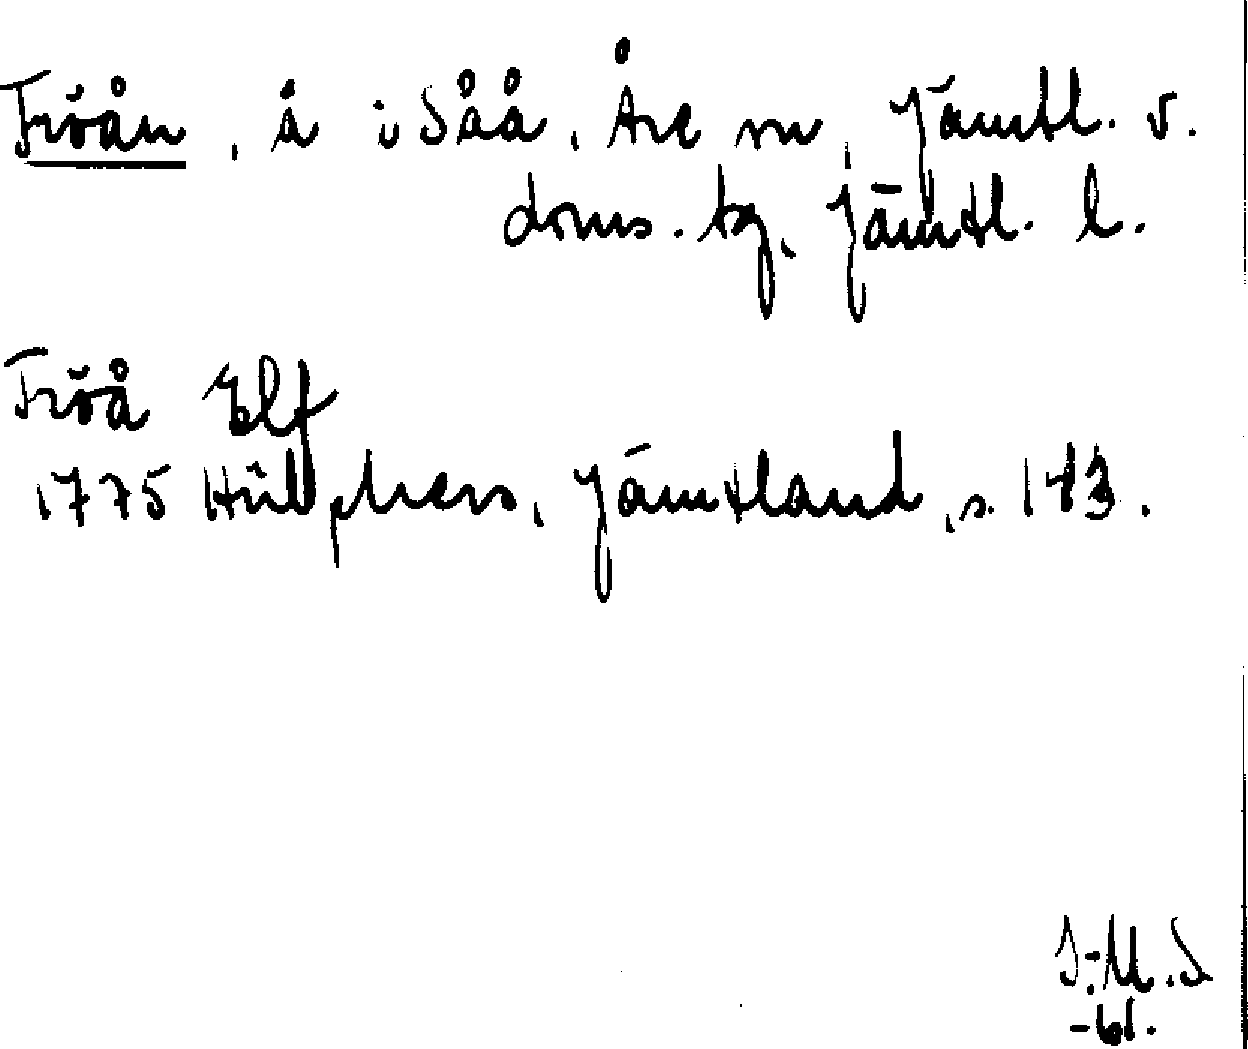 Fröån, å i Såå, Åre sn, Jämtl. v.
doms. tg, Jämtl. l.
Fröå Elf
1775 Hülphers, Jämtland, s. 143.
I-M.S
-61.